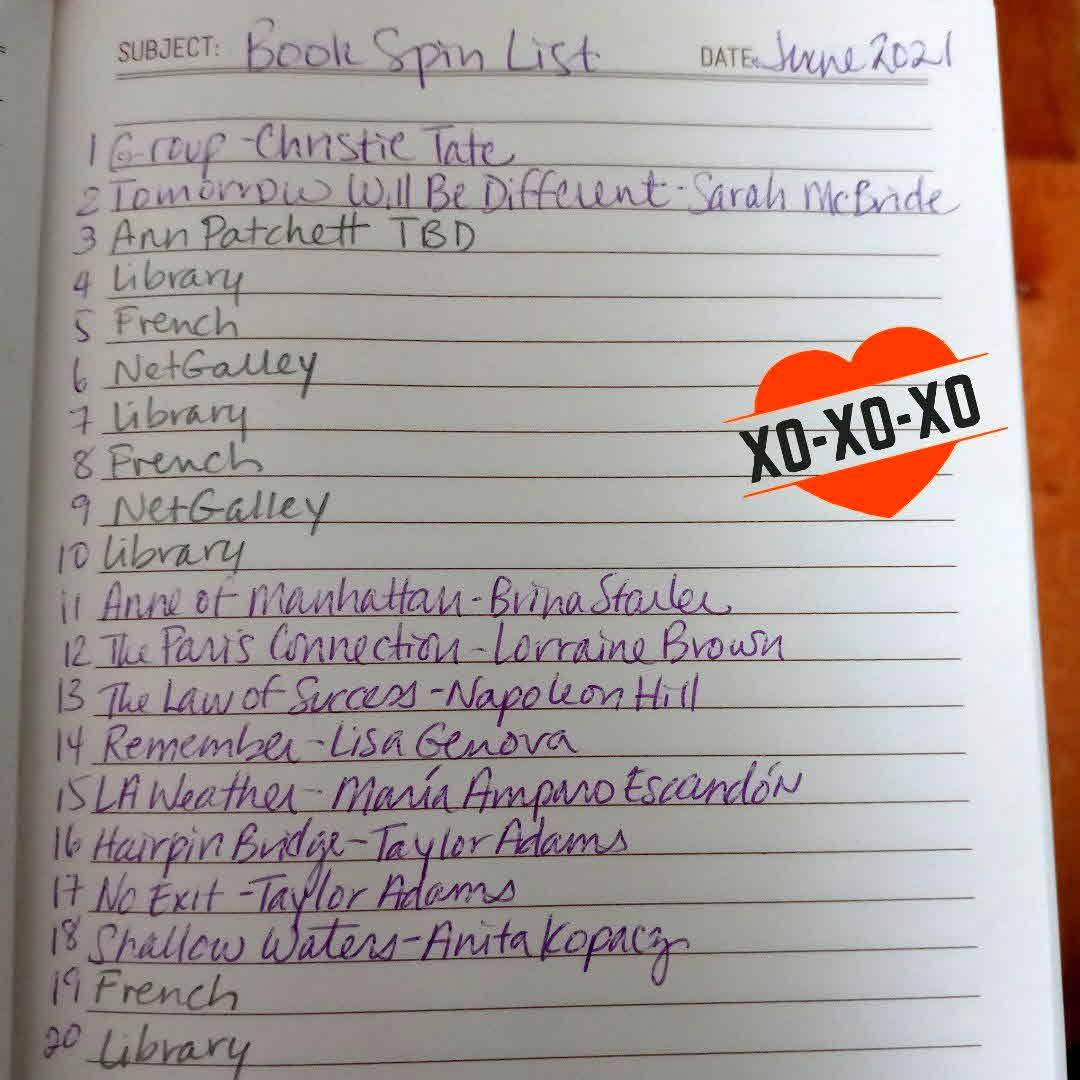 SUBJECT: Book Spin List DATE: June 2021
1 Group - Christie Tate
2 Tomorrow Will Be Different - Sarah McBride
3 Ann Patchett TBD
4 Library
5 French
6 NetGalley
7 Library
8 French
XO-XO-XO
9 NetGalley
10 Library
11 Anne of Manhattan - Brina Starler
12 The Paris Connection - Lorraine Brown
13 The Law of Success - Napoleon Hill
14 Remember - Lisa Genova
15 LA Weather - María Amparo Escandón
16 Hairpin Bridge - Taylor Adams
17 No Exit - Taylor Adams
18 Shallow Waters - Anita Kopacz
19 French
20 Library